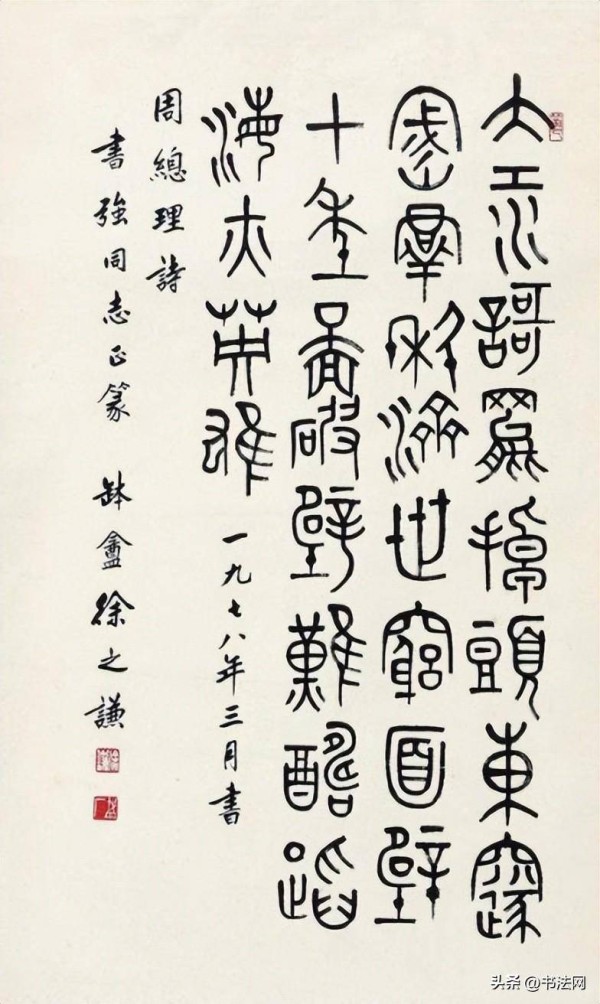 大江謌罷掉頭東邃
密羣科濟世窮面壁
十年圖破壁難酬蹈
海亦英雄 一九七八年三月書
周總理詩
書強同志正篆 缽盦徐之謙
头条 @书法网